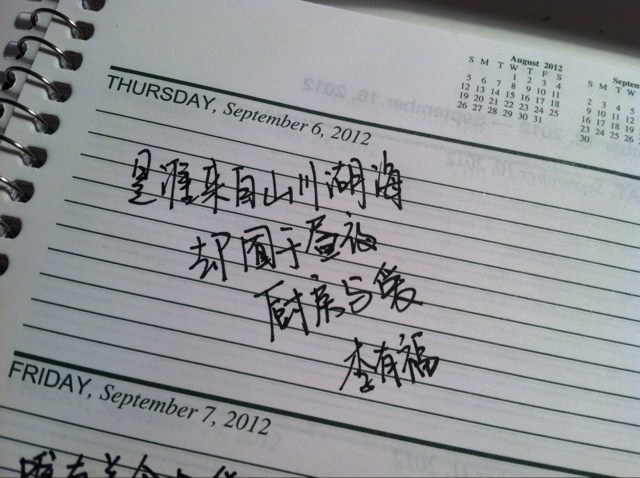 August 2012
S M T W T F S
1 2 3 4
5 6 7 8 9 10 11
12 13 14 15 16 17 18
19 20 21 22 23 24 25
26 27 28 29 30 31
S M T W
2 3 4 5
9 10 11 12
16 17 18 19
23 24 25 26
30
THURSDAY, September 6, 2012
是谁来自山川湖海
却囿于昼夜
厨房与爱
李有福
FRIDAY, September 7, 2012